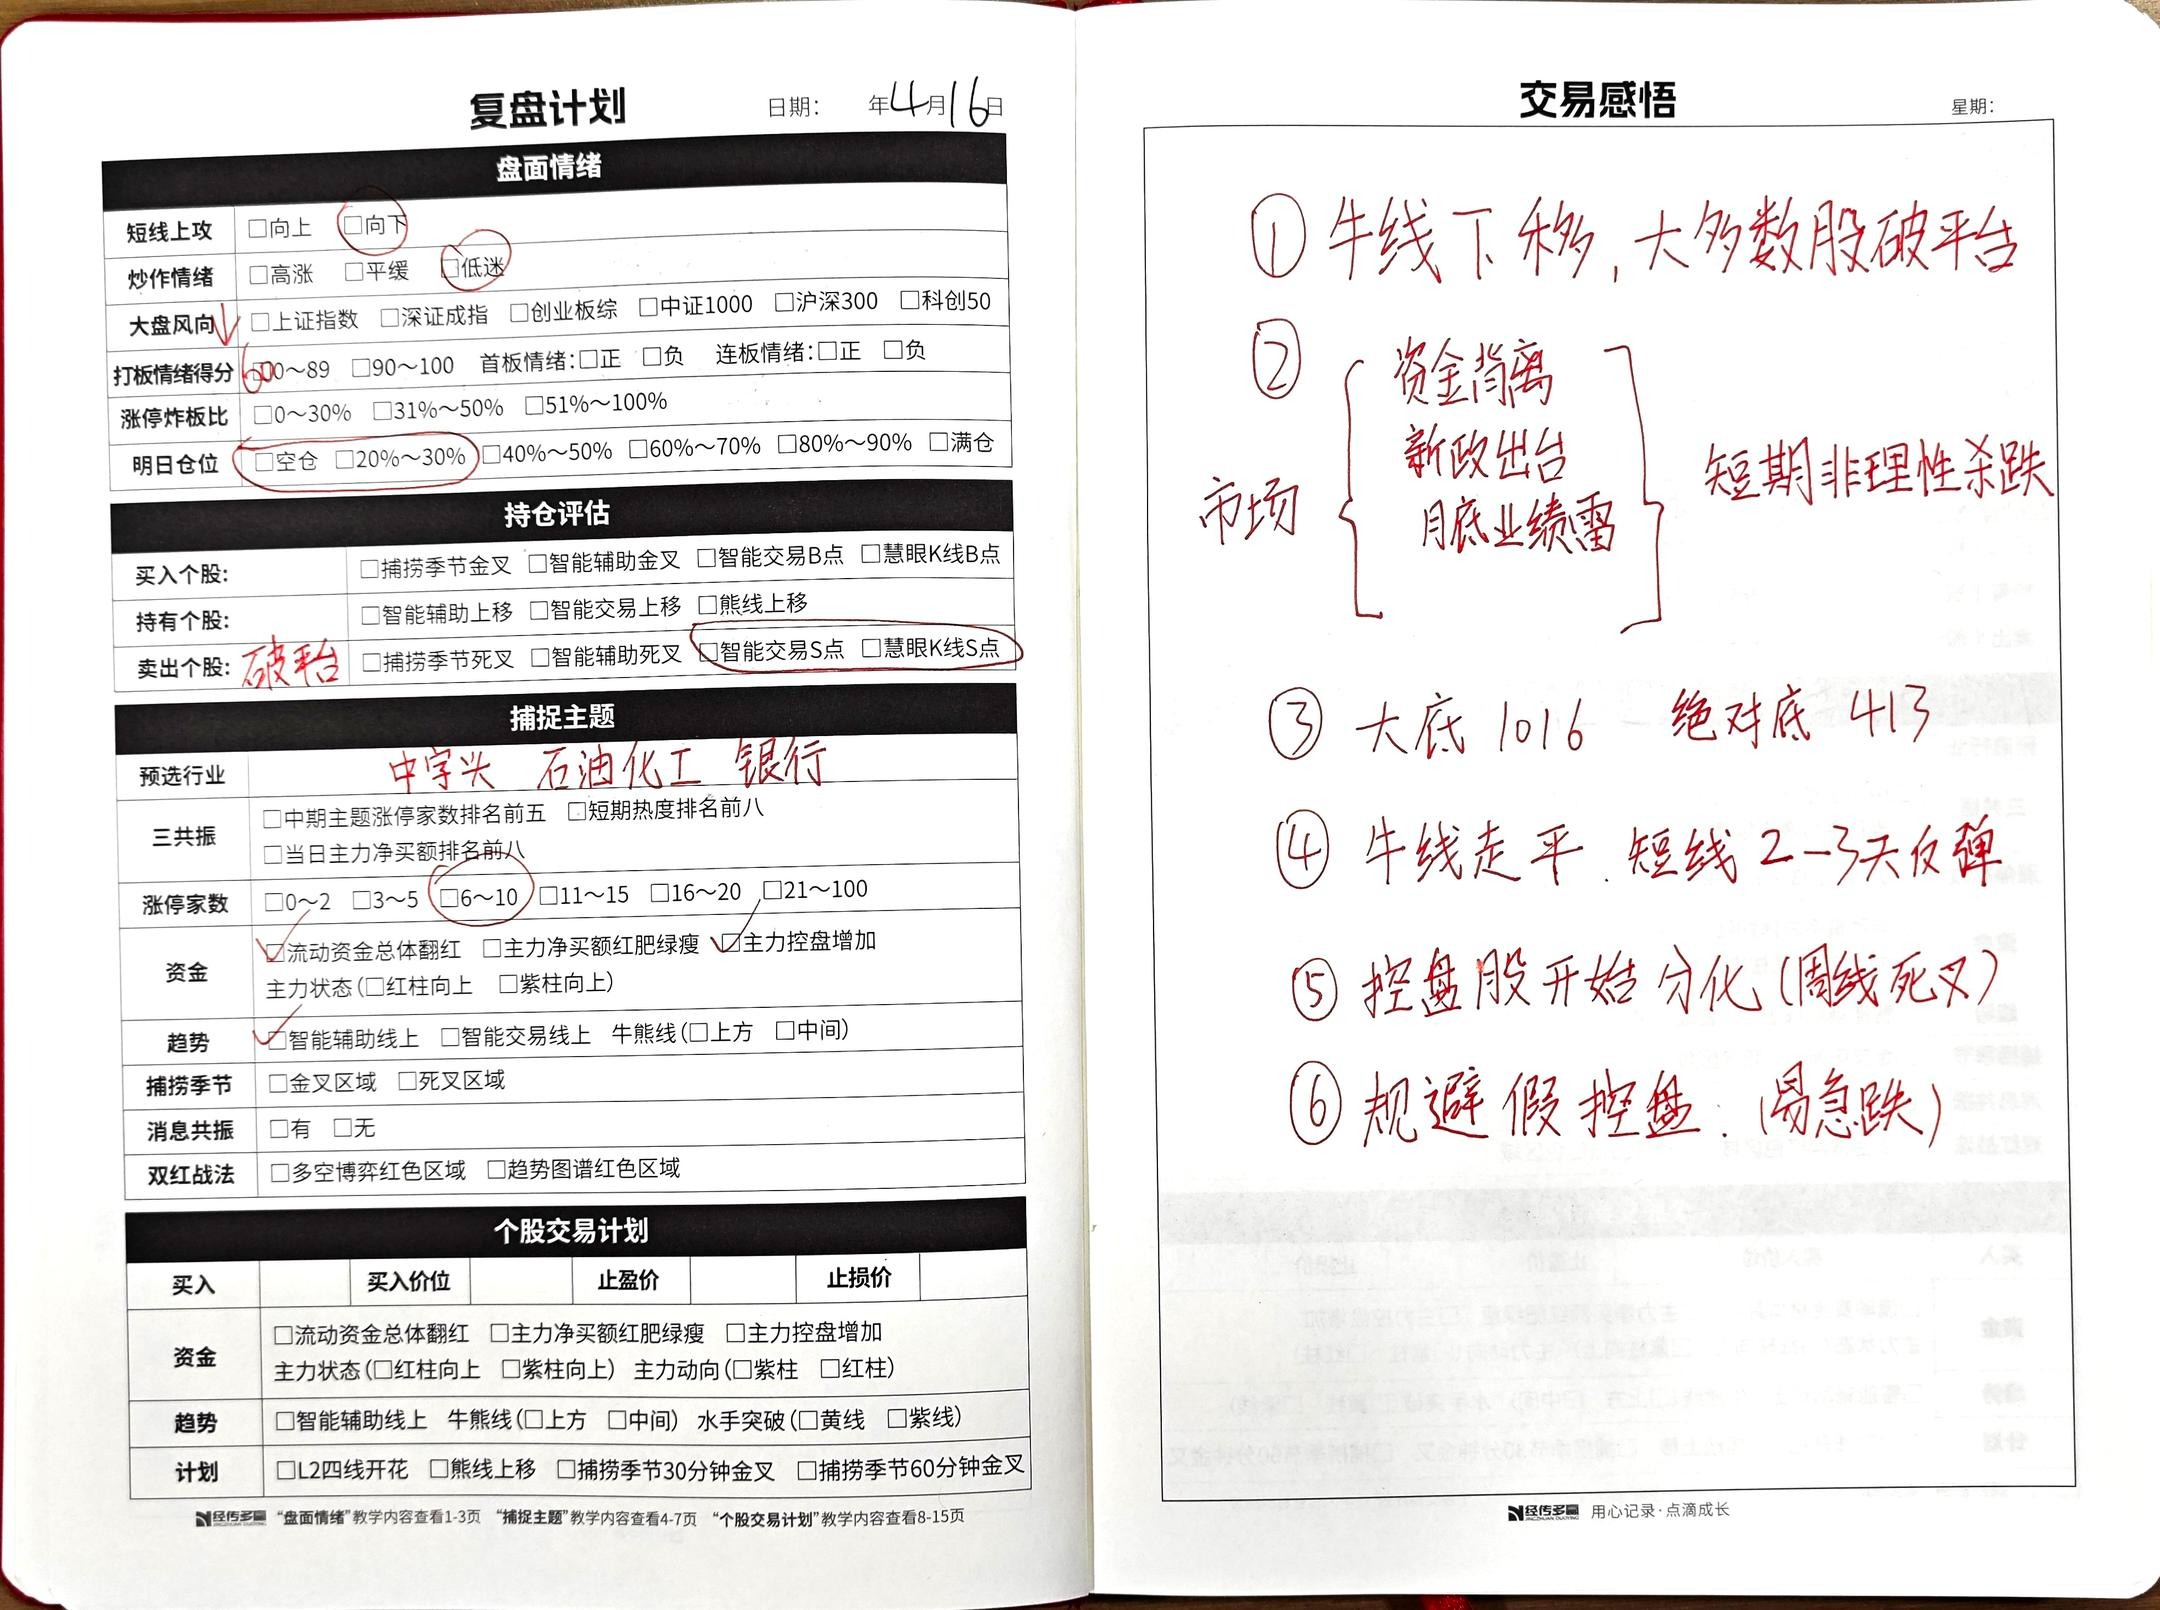 复盘计划
日期： 年4月16日
盘面情绪
短线上攻 □向上 □向下
炒作情绪 □高涨 □平缓 □低迷
大盘风向↓ □上证指数 □深证成指 □创业板综 □中证1000 □沪深300 □科创50
打板情绪得分 60 □0～89 □90～100 首板情绪：□正 □负 连板情绪：□正 □负
涨停炸板比 □0～30% □31%～50% □51%～100%
明日仓位 □空仓 □20%～30% □40%～50% □60%～70% □80%～90% □满仓
持仓评估
买入个股： □捕捞季节金叉 □智能辅助金叉 □智能交易B点 □慧眼K线B点
持有个股： □智能辅助上移 □智能交易上移 □熊线上移
卖出个股：破平台 □捕捞季节死叉 □智能辅助死叉 □智能交易S点 □慧眼K线S点
捕捉主题
预选行业 中字头 石油化工 银行
三共振 □中期主题涨停家数排名前五 □短期热度排名前八
□当日主力净买额排名前八
涨停家数 □0～2 □3～5 □6～10 □11～15 □16～20 □21～100
资金 ☑流动资金总体翻红 □主力净买额红肥绿瘦 ☑主力控盘增加
主力状态（□红柱向上 □紫柱向上）
趋势 ☑智能辅助线上 □智能交易线上 牛熊线（□上方 □中间）
捕捞季节 □金叉区域 □死叉区域
消息共振 □有 □无
双红战法 □多空博弈红色区域 □趋势图谱红色区域
个股交易计划
买入 买入价位 止盈价 止损价
资金 □流动资金总体翻红 □主力净买额红肥绿瘦 □主力控盘增加
主力状态（□红柱向上 □紫柱向上） 主力动向（□紫柱 □红柱）
趋势 □智能辅助线上 牛熊线（□上方 □中间） 水手突破（□黄线 □紫线）
计划 □L2四线开花 □熊线上移 □捕捞季节30分钟金叉 □捕捞季节60分钟金叉
经传多赢 “盘面情绪”教学内容查看1-3页 “捕捉主题”教学内容查看4-7页 “个股交易计划”教学内容查看8-15页
交易感悟
星期：
① 牛线下移，大多数股破平台
②
市场
资金背离
新政出台
月底业绩雷
短期非理性杀跌
③ 大底 1016 绝对底 413
④ 牛线走平．短线2-3天反弹
⑤ 控盘股开始分化（周线死叉）
⑥ 规避假控盘．（易急跌）
经传多赢 用心记录·点滴成长